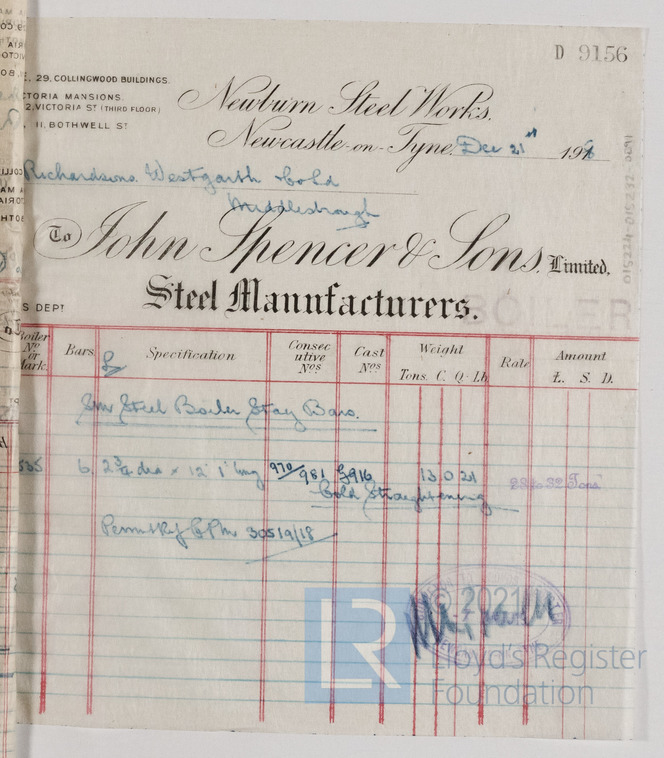 D 9156
29, COLLINGWOOD BUILDINGS.
CTORIA MANSIONS.
2, VICTORIA ST (THIRD FLOOR)
11, BOTHWELL ST
Newburn Steel Works.
Newcastle-on-Tyne, Dec 21st 191
Richardsons Westgarth & Co Ld
Middlesbrough
To John Spencer & Sons, Limited.
Steel Manufacturers.
S DEPT
BOILER
Boiler No or Mark. Bars Specification Consecutive Nos Cast Nos Weight Rate Amount
Tons. C. Q. Lb. £. S. D.
Steel Boiler Stay Bars.
535 6 2 3/4 dia x 12' 1" long 970/981 9916 13 0 21 28 to 32 Tons
Cold Straightening
30519/18
015224-015232-0691
© 2021
LR
Lloyd's Register
Foundation